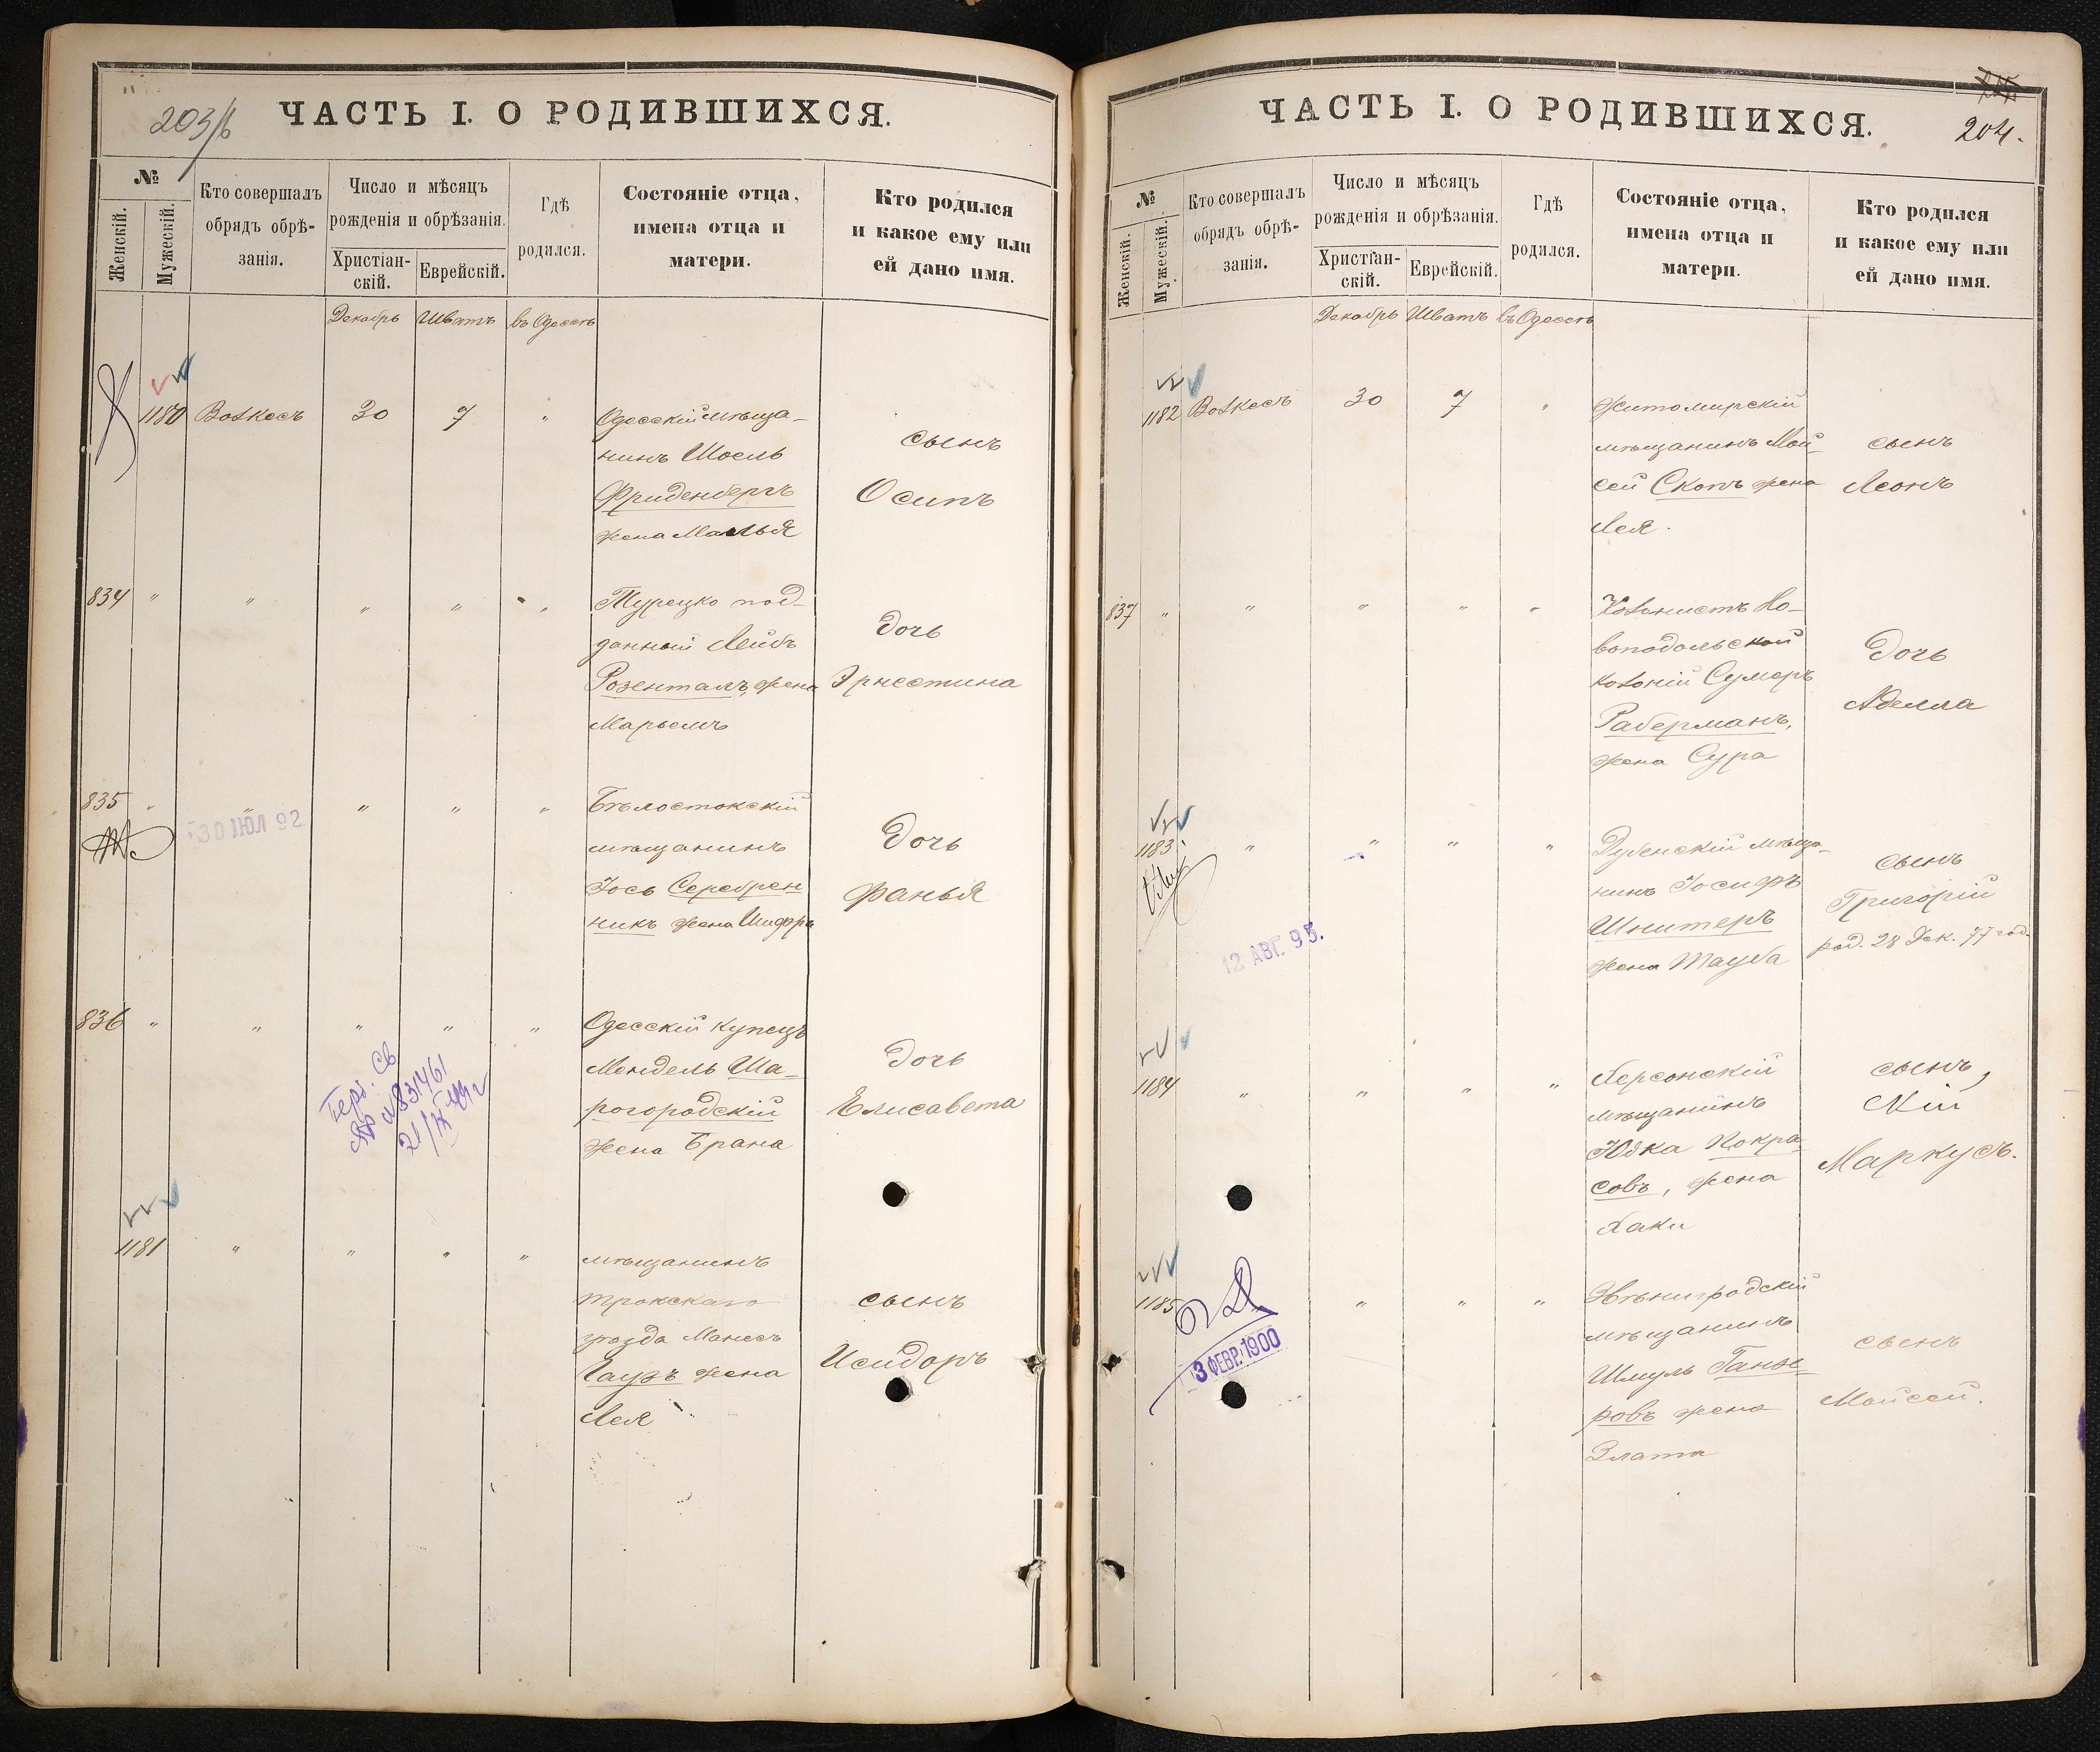 203/б
ЧАСТЬ I. О РОДИВШИХСЯ.
№
Женскій.
Мужескій.
Кто совершалъ
обрядъ обрѣ-
занія.
Число и мѣсяцъ
рожденія и обрѣзанія.
Христіан-
скій.
Еврейскій.
Гдѣ
родился.
Состояніе отца,
имена отца и
матери.
Кто родился
и какое ему или
ей дано имя.
Декабрь Шватъ въ Одессѣ
1180 Волкесъ 30 7 "
Одесскій мѣща-
нинъ Шоель
Фриденбергъ
жена Малья
сынъ
Осипъ
834 " " " " "
Турецко под-
данный Лейбъ
Розенталъ, жена
Марьемъ
дочь
Эрнестина
835 " " " " "
30 ІЮЛ 92
Бѣлостокскій
мѣщанинъ
Іось Серебрен
никъ жена Шифра
дочь
Фанья
836 " " " " "
Одесскій купецъ
Мендель Ша-
рогородскій
жена Брана
дочь
Елисавета
1181 " " " "
мѣщанинъ
Трокскаго
уѣзда Манесъ
Гаузъ жена
Лея
сынъ
Исидоръ
204.
ЧАСТЬ I. О РОДИВШИХСЯ.
№
Женскій.
Мужескій.
Кто совершалъ
обрядъ обрѣ-
занія.
Число и мѣсяцъ
рожденія и обрѣзанія.
Христіан-
скій.
Еврейскій.
Гдѣ
родился.
Состояніе отца,
имена отца и
матери.
Кто родился
и какое ему или
ей дано имя.
Декабрь Шватъ въ Одессѣ
1182 Волкесъ 30 7 "
Житомирскій
мѣщанинъ Мой-
сей Скопъ жена
Лея.
сынъ
Леонъ
837 " " " " "
Колонистъ Но-
воподольской
колоніи Сумеръ
Раберманъ,
жена Сура
дочь
Аделла
1183 " " " "
12 АВГ. 95.
Дубенскій мѣща-
нинъ Іосифъ
Шнитеръ
жена Тауба
сынъ
Григорій
род. 28 Дек. 77 год.
1184 " " " "
Херсонскій
мѣщанинъ
Юдка Покра-
совъ, жена
Хаки
сынъ,
Маркусъ.
1185 " " " "
3 ФЕВР. 1900
Звѣнигродскій
мѣщанинъ
Шмуль Ганже-
ровъ жена
Злата
сынъ
Мойсей.